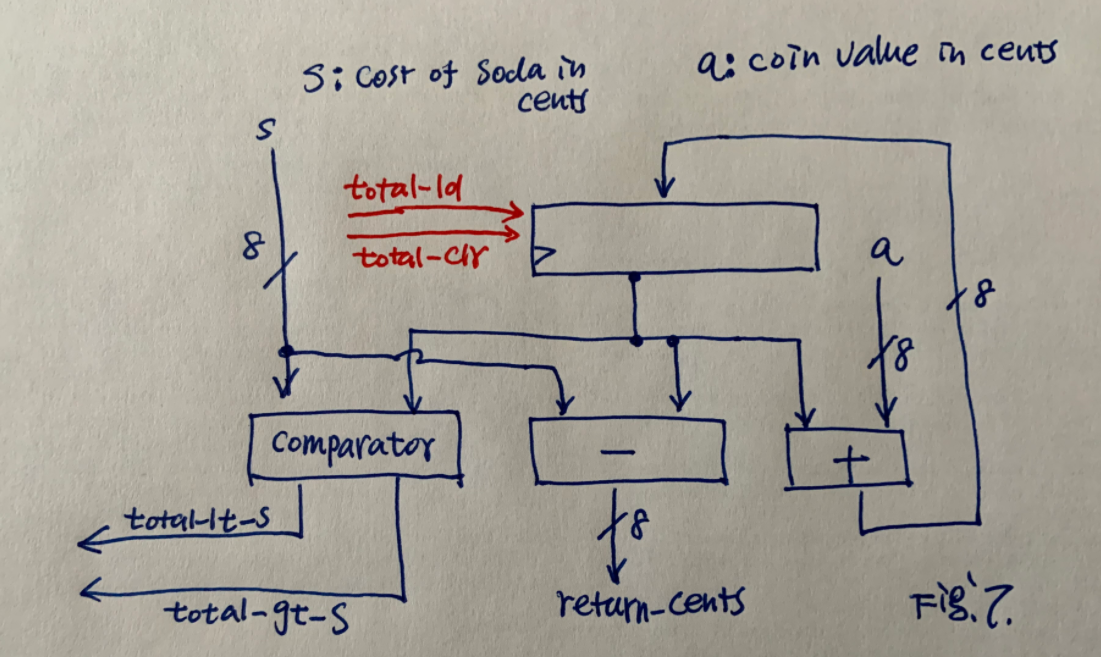 S: Cost of Soda in
cents
a: coin value in cents
S
total-ld
total-clr
8
a
8
8
Comparator
−
+
total-lt-S
8
total-gt-S
return-cents
Fig.7.